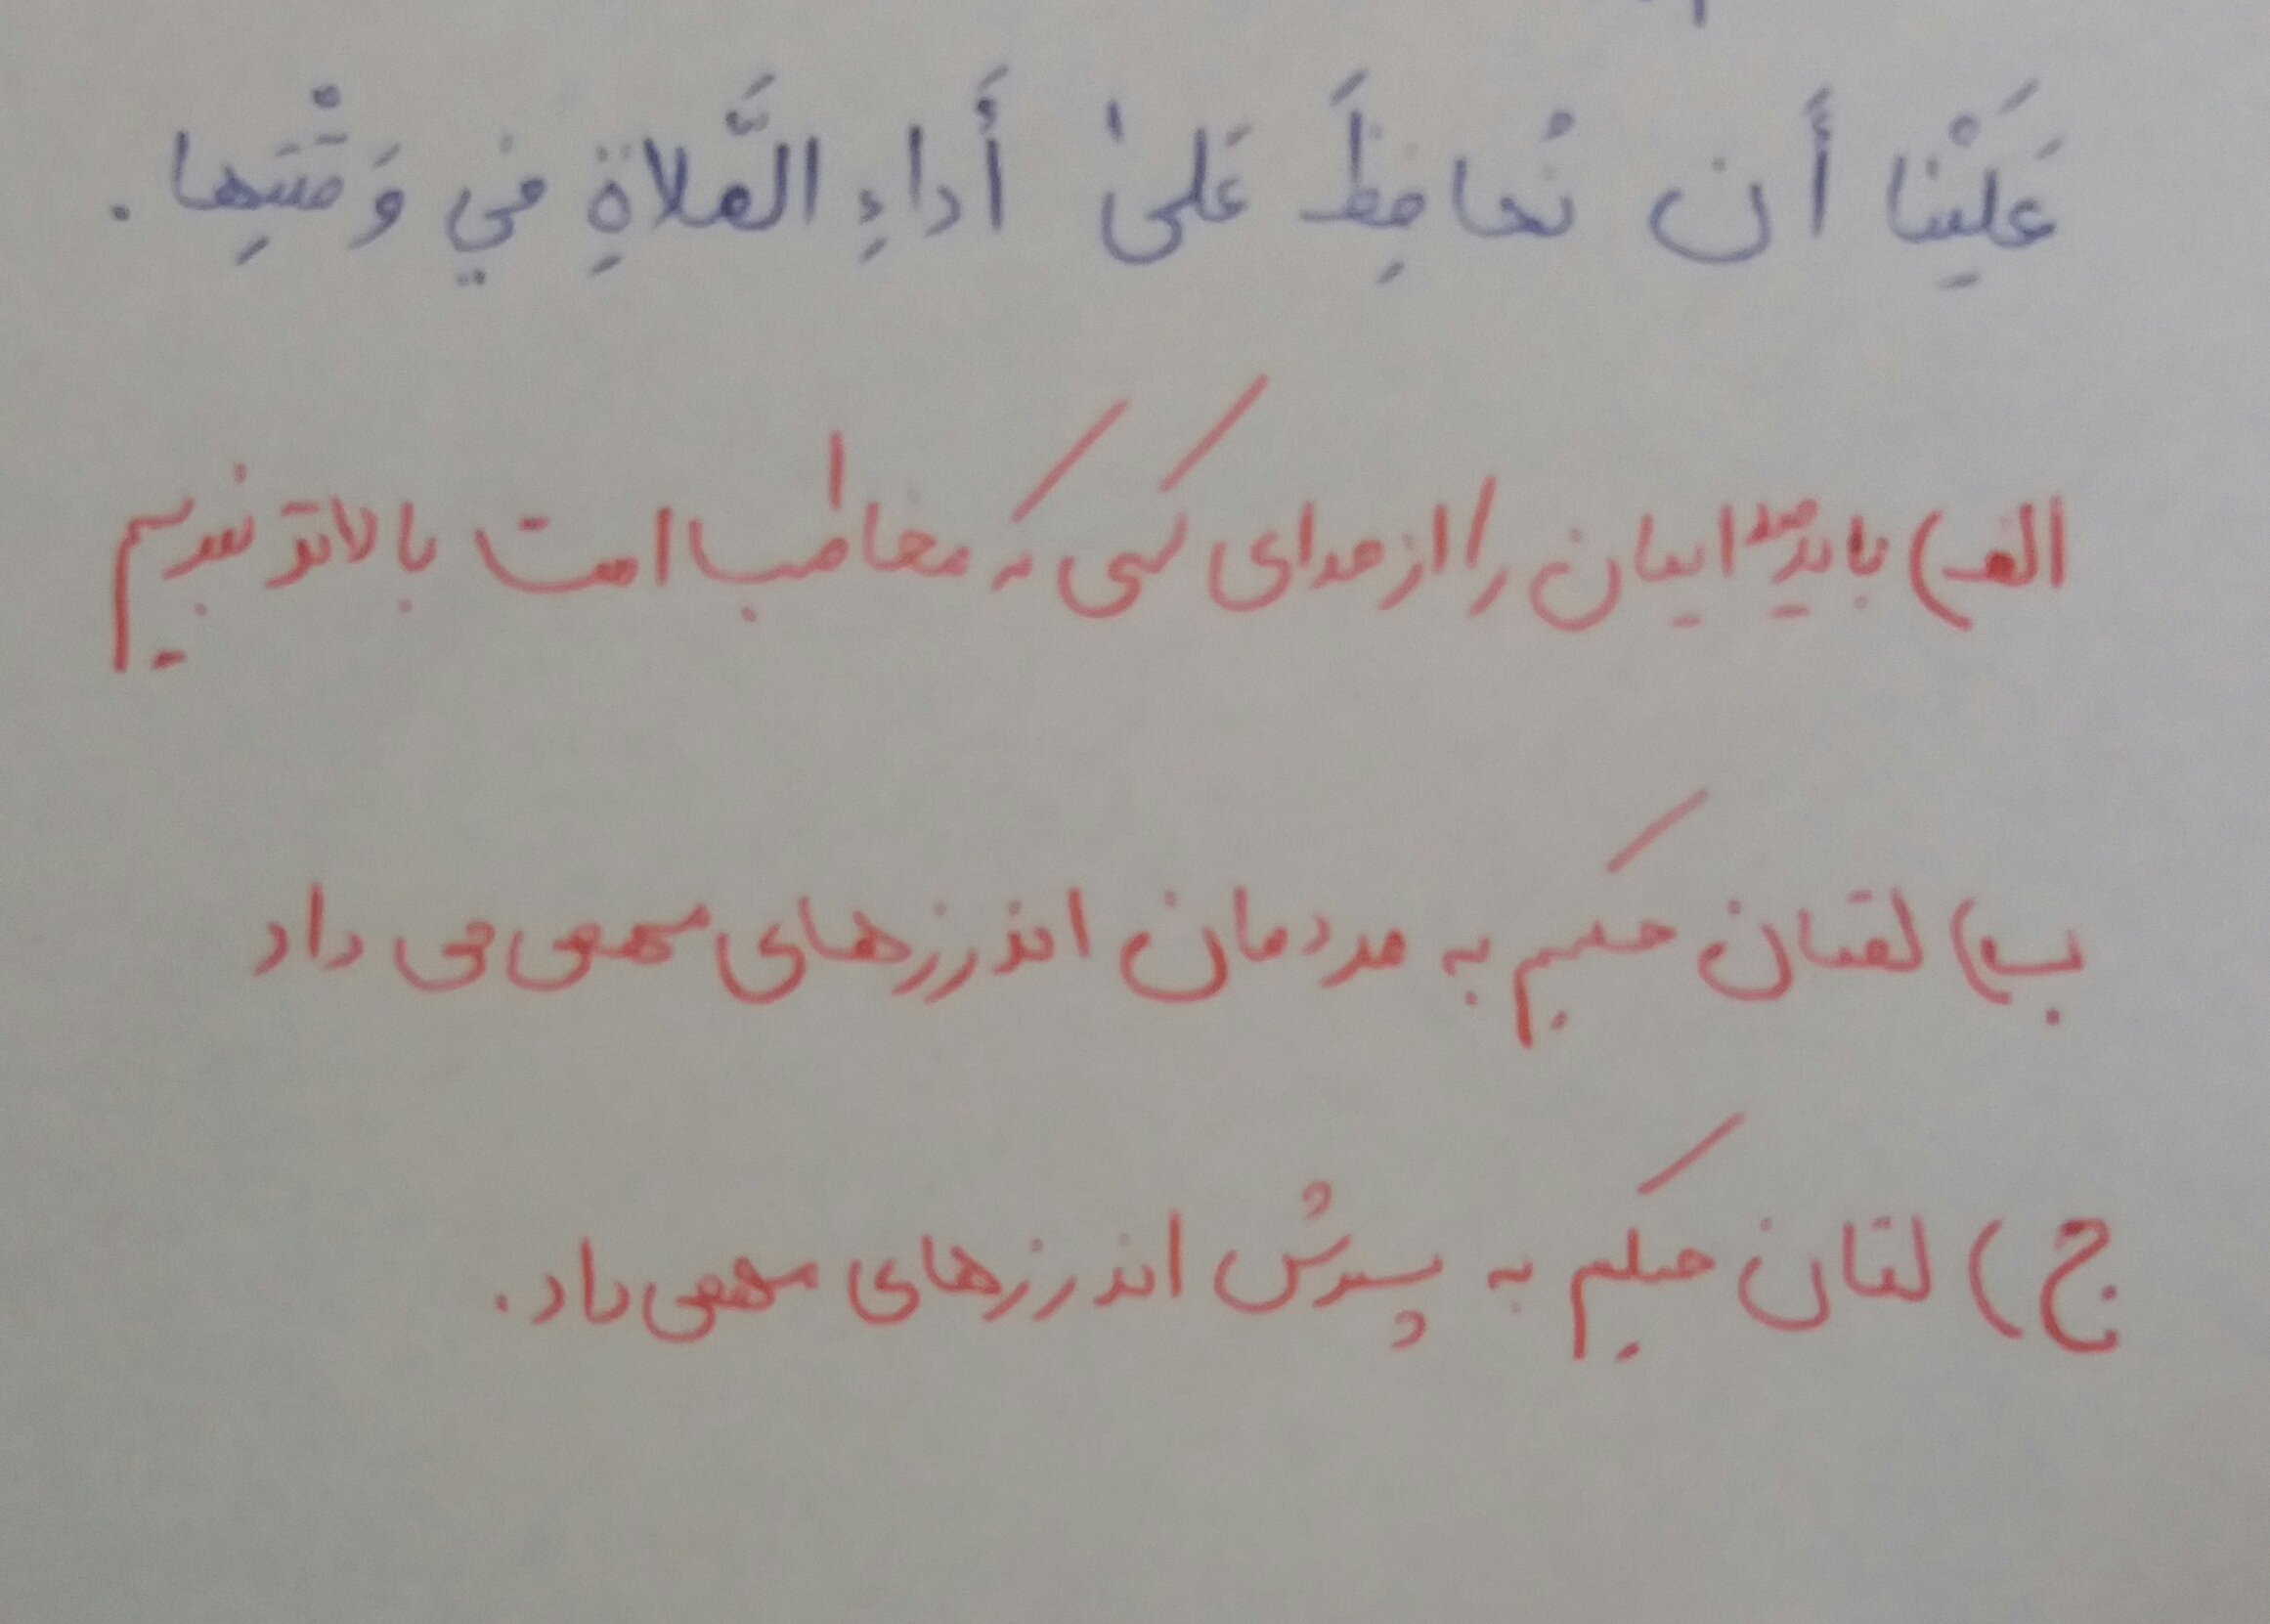 عَلَيْنا أَن نُحافِظَ عَلىٰ أَداءِ الصَّلاةِ في وَقْتِها .
الف) باید صدایمان را از صدای کسی که مخاطب است بالاتر نبریم
ب) لقمان حکیم به مردمان اندرزهای مهمی می داد
ج) لقمان حکیم به پسرش اندرزهای مهمی داد .